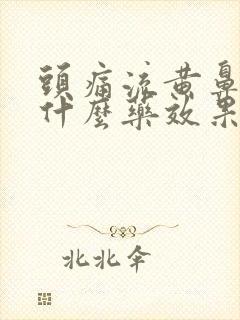 頭痛流黄鼻
什麼藥效果
北北伞